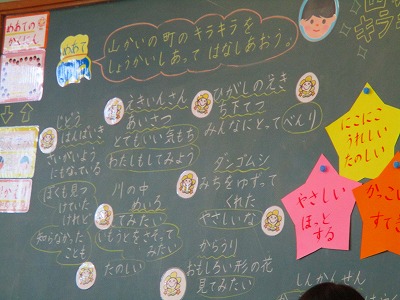 めあての
かくにん
めあて
山かいの町のキラキラを
しょうかいしあって はなしあおう。
えきいんさん
あいさつ
とてもいい気もち
わたしもしてみよう
ひがしのえき
ちかてつ
みんなにとってべんり
じどう
はんばいき
さいがいように
もなっている
ぼくも見つ
けていた
けれど
知らなかった
ことも
川の中
めいろ
してみたい
いもうとをさそって
みたい
たのしい
ダンゴムシ
みちをゆずって
くれた
やさしいな
からうり
おもしろい形の花
見てみたい
しんかんせん
にこにこ
うれしい
たのしい
やさしい
ほっと
する
かっこいい
すてき
キラ